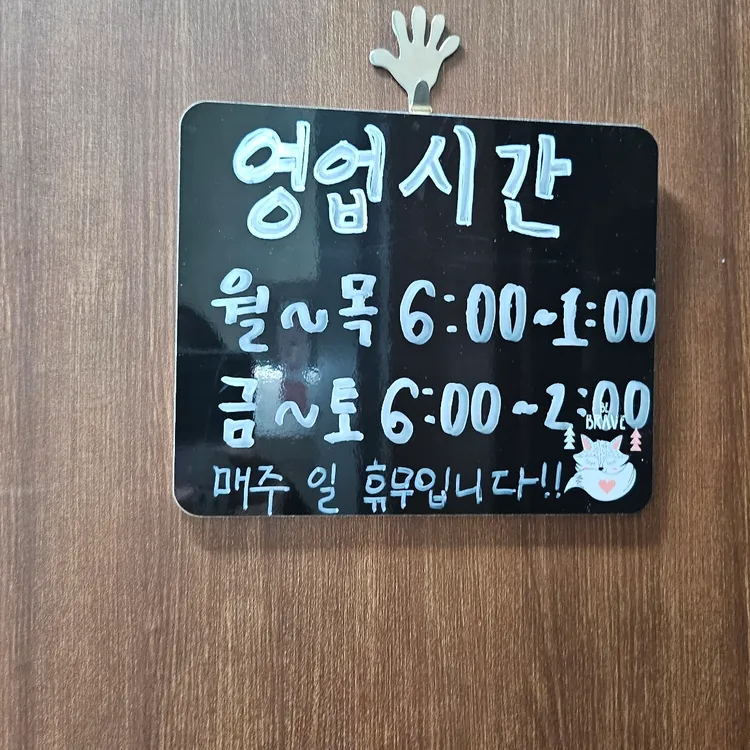 영업시간
월~목 6:00~1:00
금~토 6:00~2:00
BE
BRAVE
매주 일 휴무입니다!!